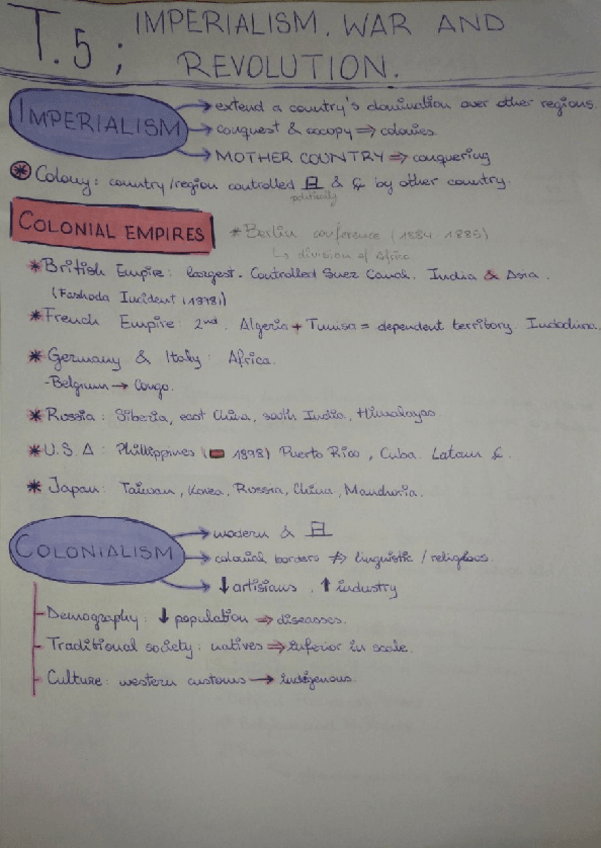 T.5; IMPERIALISM, WAR AND
REVOLUTION.
IMPERIALISM
→ extend a country's domination over other regions.
→ conquest & occopy ⇒ colonies.
→ MOTHER COUNTRY ⇒ conquering
* Colony: country/region controlled & by other country.
politically
COLONIAL EMPIRES
* Berlin conference (1884-1885)
↳ division of Africa
* British Empire: largest. Controlled Suez Canal, India & Asia.
(Fashoda Incident (1898))
* French Empire: 2nd. Algeria + Tunisa = dependent territory. Indochina.
* Germany & Italy: Africa.
- Belgium → Congo.
* Russia: Siberia, east China, south India, Himalayas
* U.S.A: Phillippines (1898) Puerto Rico, Cuba. Latam
* Japan: Taiwan, Korea, Russia, China, Manchuria.
COLONIALISM
→ modern &
→ colonial borders ⇏ linguistic / religious.
→ ↓ artisians, ↑ industry
- Demography: ↓ population ⇒ diseasses.
- Traditional society: natives ⇒ inferior in scale.
- Culture: western customs → indigenous.